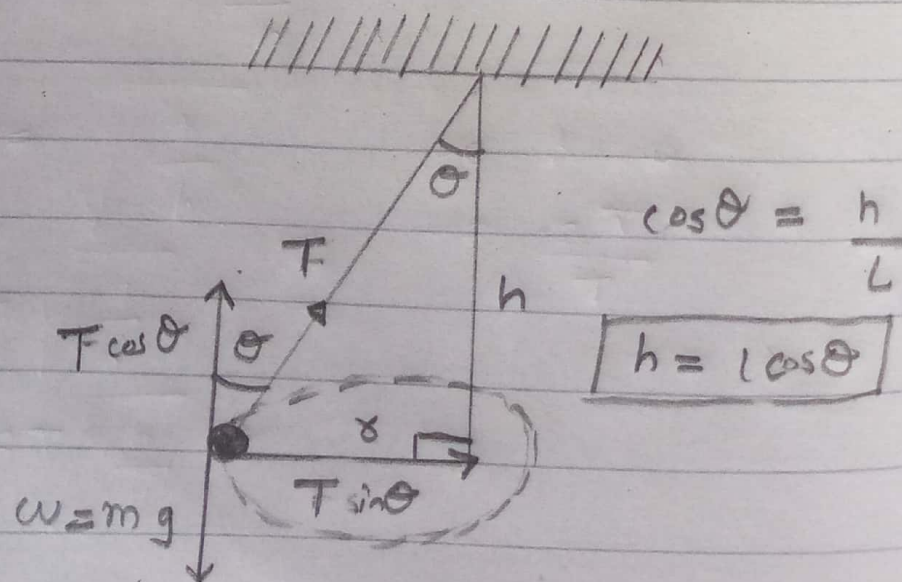 θ
cosθ = h
L
T
h
Tcosθ
θ
h = lcosθ
r
T sinθ
w=mg